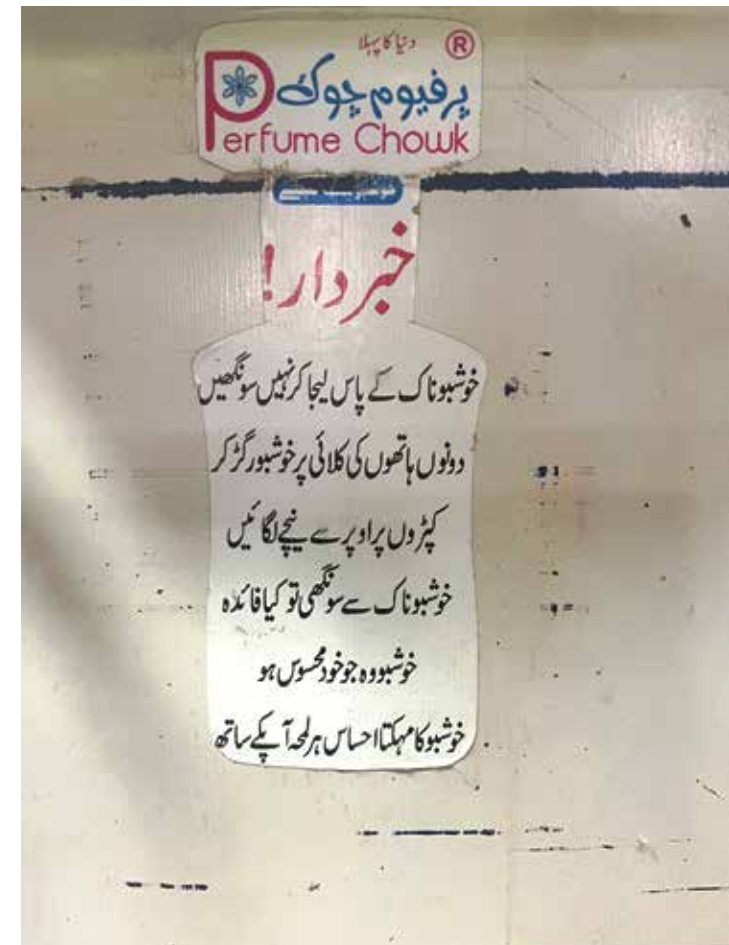 دنیا کا پہلا ®
پرفیوم چوک
Perfume Chowk
خبردار!
خوشبو ناک کے پاس لیجا کر نہیں سونگھیں
دونوں ہاتھوں کی کلائی پر خوشبو رگڑ کر
کپڑوں پر اوپر سے نیچے لگائیں
خوشبو ناک سے سونگھی تو کیا فائدہ
خوشبو وہ جو خود محسوس ہو
خوشبو کا مہکتا احساس ہر لمحہ آپکے ساتھ